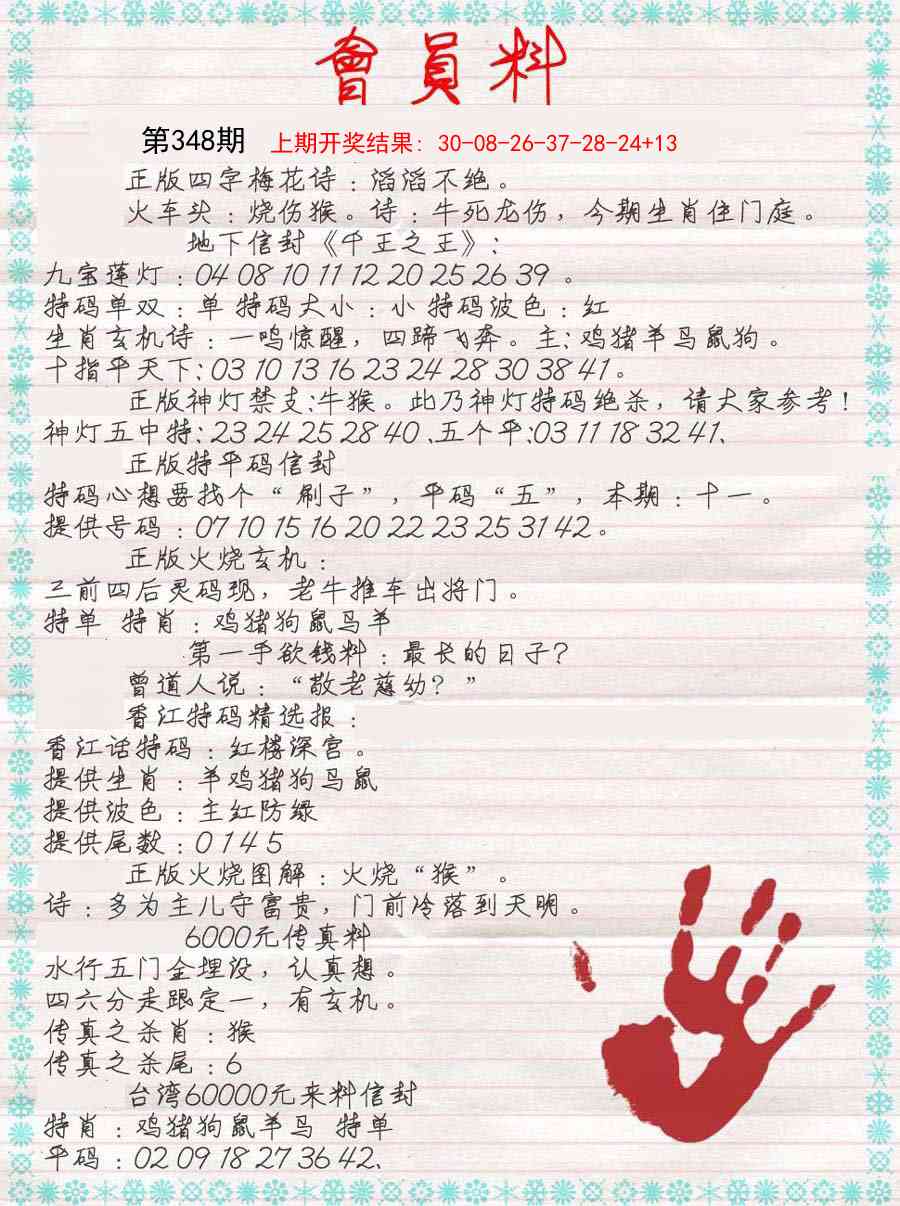 會員料
第348期 上期开奖结果: 30-08-26-37-28-24+13
正版四字梅花诗：滔滔不绝。
火车头：烧伤猴。诗：牛死龙伤，今期生肖住门庭。
地下信封《千王之王》：
九宝莲灯：04 08 10 11 12 20 25 26 39 。
特码单双：单 特码大小：小 特码波色：红
生肖玄机诗：一鸣惊醒，四蹄飞奔。主：鸡猪羊马鼠狗。
十指平天下：03 10 13 16 23 24 28 30 38 41。
正版神灯禁支:牛猴。此乃神灯特码绝杀，请大家参考！
神灯五中特：23 24 25 28 40 、五个平:03 11 18 32 41、
正版特平码信封
特码心想要找个“刷子”，平码“五”，本期：十一。
提供号码：07 10 15 16 20 22 23 25 31 42 。
正版火烧玄机：
三前四后灵码现，老牛推车出将门。
特单 特肖：鸡猪狗鼠马羊
第一手欲钱料：最长的日子？
曾道人说：“敬老慈幼？”
香江特码精选报：
香江话特码：红楼深宫。
提供生肖：羊鸡猪狗马鼠
提供波色：主红防绿
提供尾数：0 1 4 5
正版火烧图解：火烧“猴”。
诗：多为主儿守富贵，门前冷落到天明。
6000元传真料
水行五门金埋设，认真想。
四六分走跟定一，有玄机。
传真之杀肖：猴
传真之杀尾：6
台湾60000元来料信封
特肖：鸡猪狗鼠羊马 特单
平码：02 09 18 27 36 42、